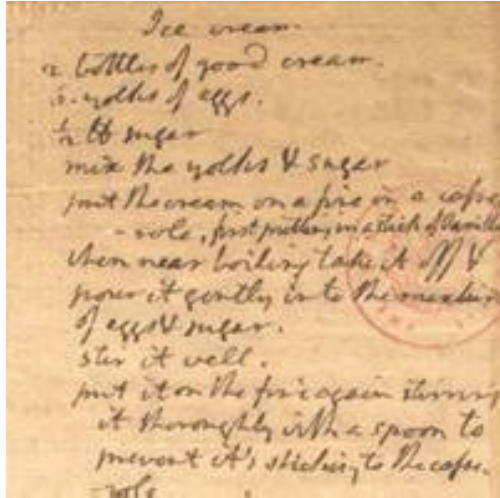 Ice cream.
2 bottles of good cream.
6. yolks of eggs.
½ ℔ sugar
mix the yolks & sugar
put the cream on a fire in a casse
- role, first putting in a stick of Vanilla
when near boiling take it off &
pour it gently into the mixture
of eggs & sugar.
stir it well.
put it on the fire again stirring
it thoroughly with a spoon to
prevent it's sticking to the casse-
- role.